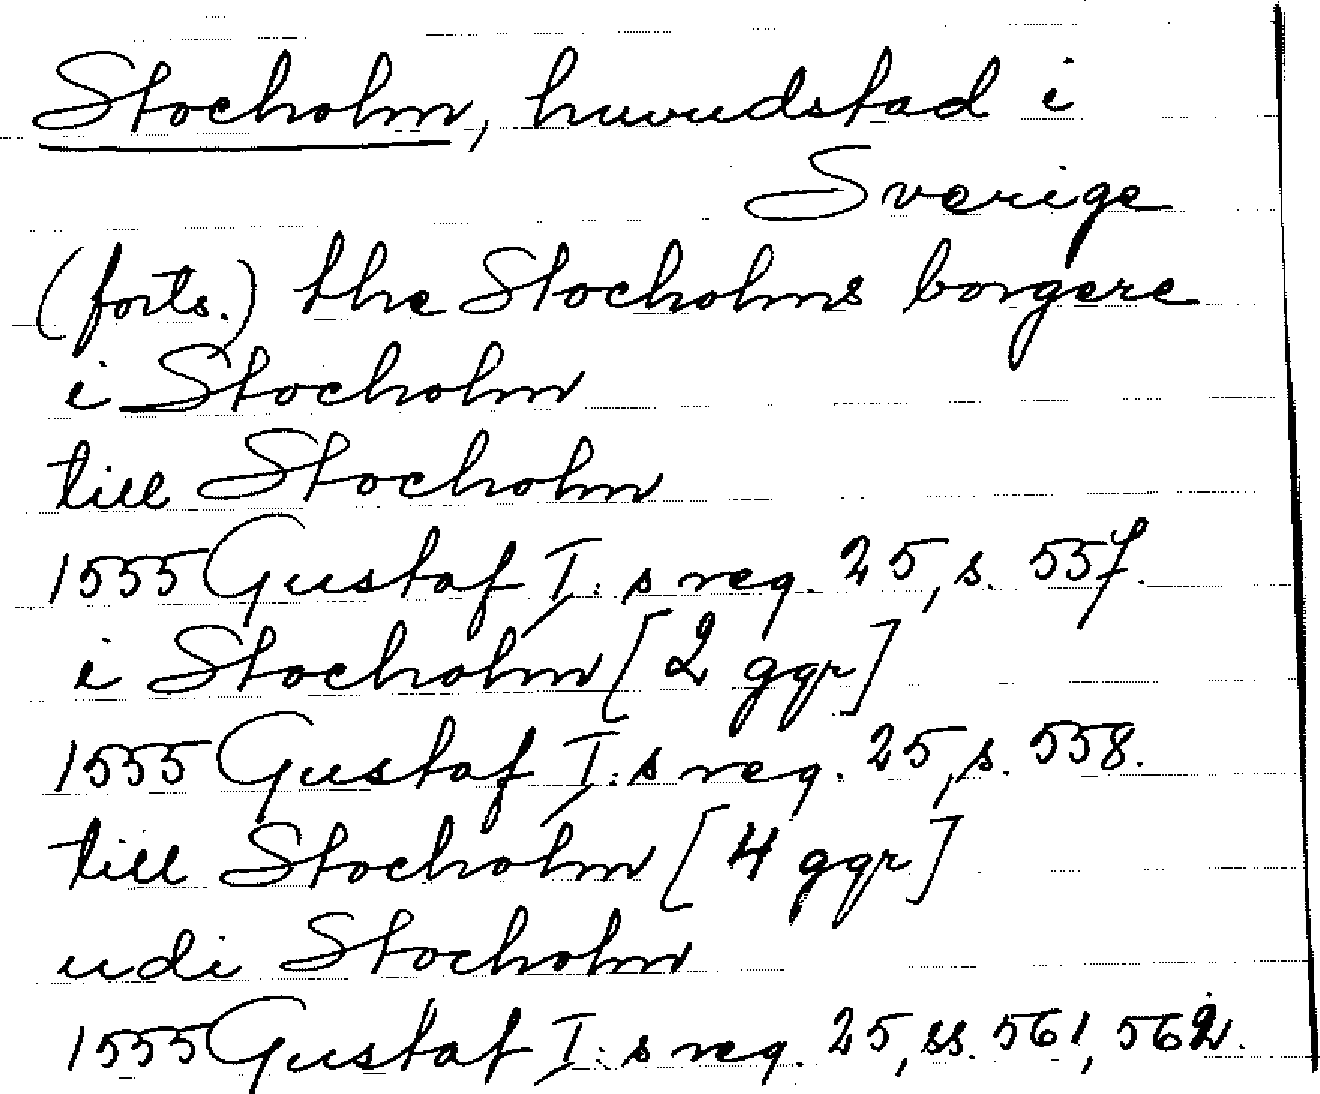 Stocholm, huvudstad i
Sverige
(forts.) the Stocholms borgere
i Stocholm
till Stocholm
1555 Gustaf I:s reg. 25, s. 557.
i Stocholm [2 ggr]
1555 Gustaf I:s reg. 25, s. 558.
till Stocholm [4 ggr]
udi Stocholm
1555 Gustaf I:s reg. 25, ss. 561, 562.